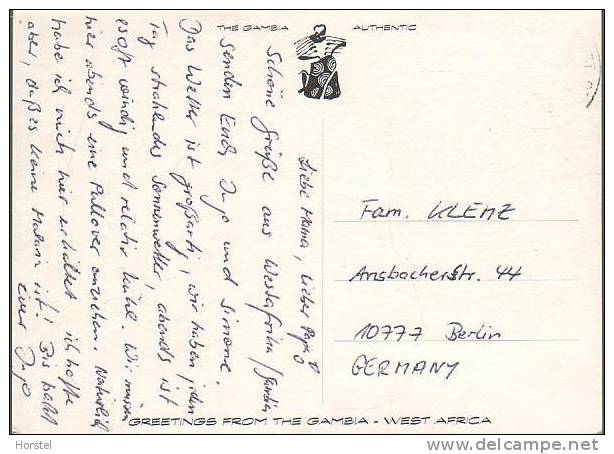 THE GAMBIA AUTHENTIC
Liebe Mama, lieber Papa
Schöne Grüße aus Westafrika / Gambia
senden Euch Ingo und Simone.
Das Wetter ist großartig, wir haben jeden
Tag strahlendes Sonnenwetter, abends ist
es oft windig und relativ kühl. Wir müssen
hier abends eine Pullover anziehen. Natürlich
habe ich mich hier erkältet ich hoffe
aber, daß es keine Malaria ist! Bis bald
Euer Ingo
Fam. KLEMZ
Ansbacherstr. 44
10777 Berlin
GERMANY
GREETINGS FROM THE GAMBIA - WEST AFRICA
Horstel
www.delcampe.net